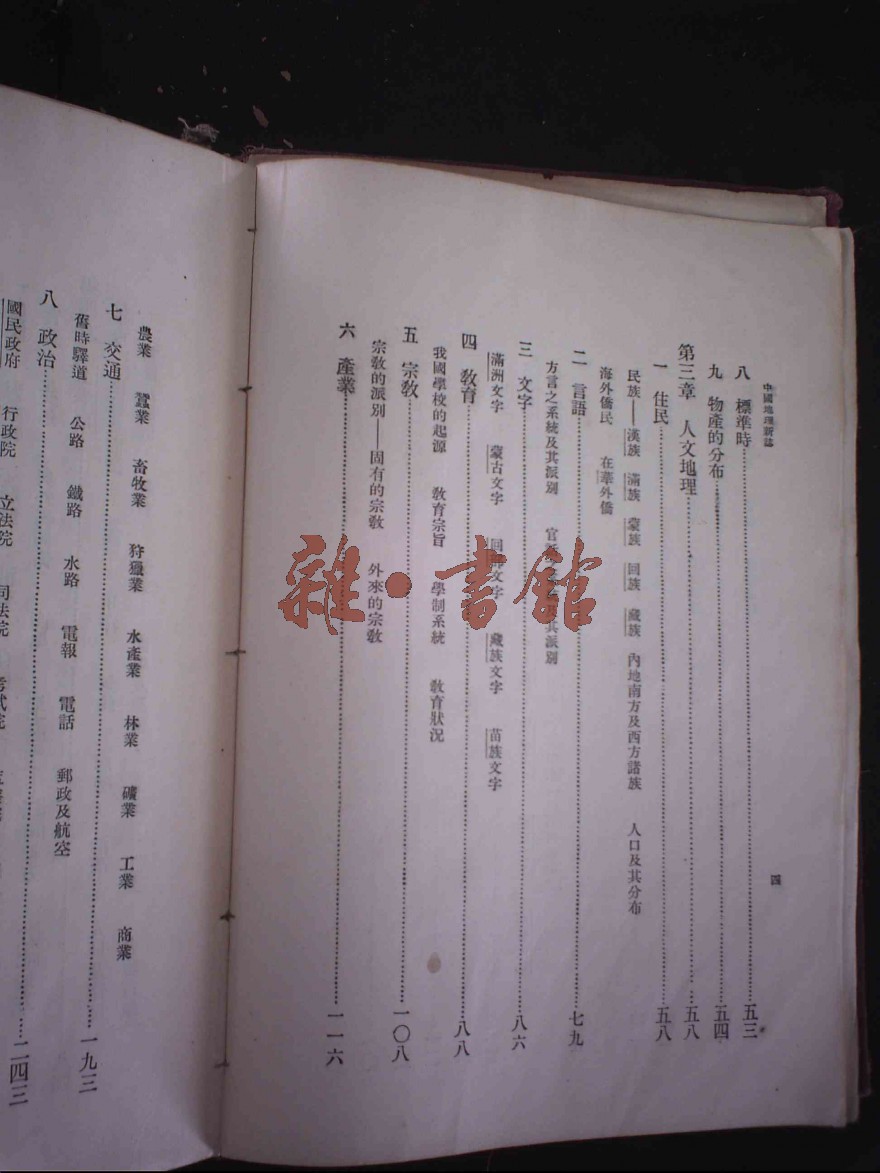 中國地理新誌
四
八 標準時……五三
九 物產的分布……五四
第三章 人文地理……五八
一 住民……五八
民族——漢族 滿族 蒙族 回族 藏族 內地南方及西方諸族 人口及其分布
海外僑民 在華外僑
二 言語……七九
方言之系統及其派別 官 其派別
三 文字……八六
滿洲文字 蒙古文字 回 文字 藏族文字 苗族文字
四 敎育……八八
我國學校的起源 敎育宗旨 學制系統 敎育狀況
五 宗敎……一〇八
宗敎的派別——固有的宗敎 外來的宗敎
六 產業……一一六
農業 蠶業 畜牧業 狩獵業 水產業 林業 礦業 工業 商業
七 交通……一九三
舊時驛道 公路 鐵路 水路 電報 電話 郵政及航空
八 政治……二四三
國民政府 行政院 立法院 司法院 考試院
雜·書館